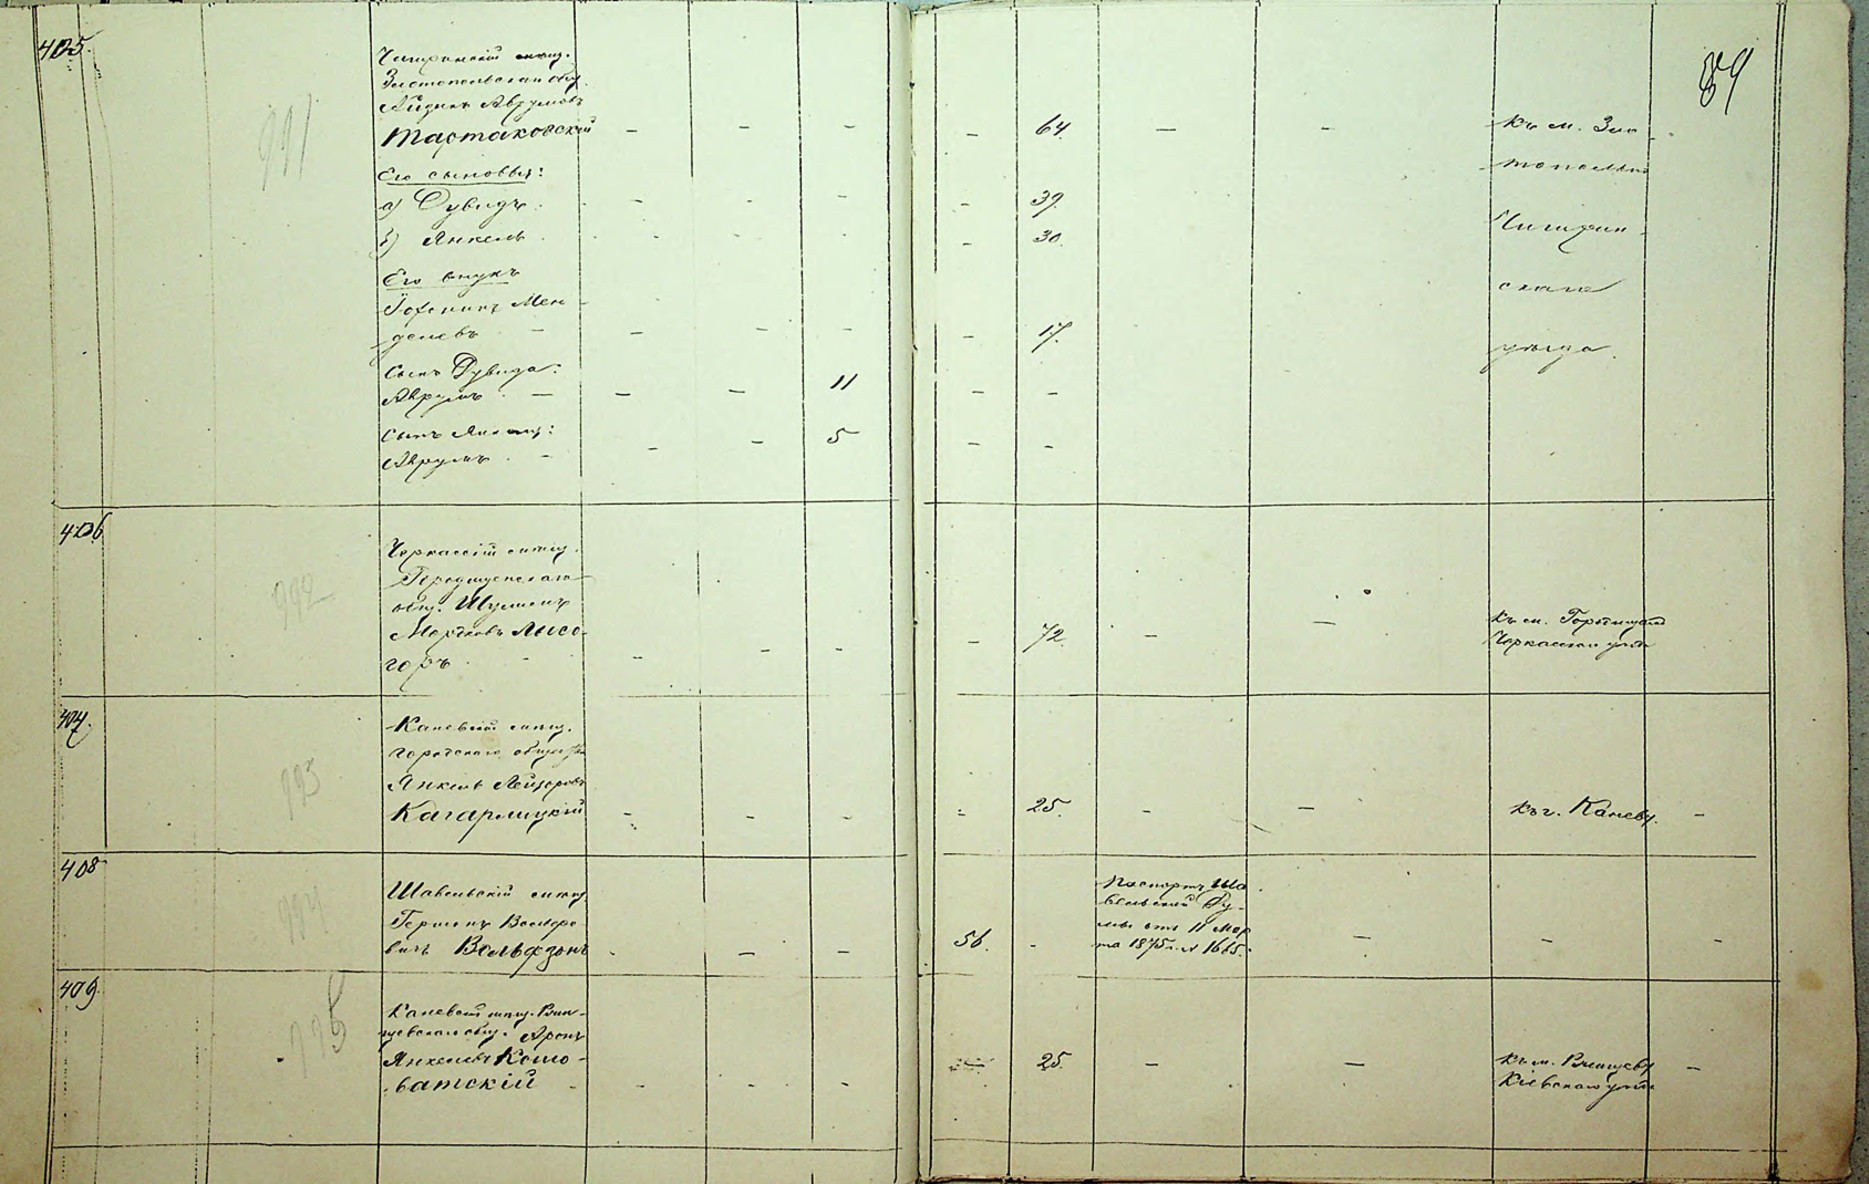 89
405.
991
Чигиринскій мѣщ.
Златопольскаго общ.
Айзикъ Аврумовъ
Тартаковскій – – – – 64. – – Къ м. Зла-
тополью
Его сыновья:
а) Дувидъ. – – – – 39.
Чигирин-
б) Янкель. – – – – 30.
Его внукъ
скаго
Мен-
делевъ – – – – – 17.
уѣзда.
Сынъ Дувида:
Аврумъ. – – – 11 – –
Сынъ Янкеля:
Аврумъ. – – – 5 – –
406
992
Черкасскій мѣщ.
Городищенскаго
общ. Шулимъ
Мордковъ Лысо-
горъ. – – – – – 72. – – Къ м. Городищу
Черкасскаго уѣзда
407.
993
Каневскій мѣщ.
городского общества
Янкель Лейзоровъ
Кагарлицкій – – – – 25. – – Къ г. Каневу. –
408
994
Шавельскій мѣщ.
Вольфзонъ – – – 56. – Паспортъ Ша-
вельской Ду-
мы отъ 11 Мар-
та 1875 г. № 1665. – – –
409
995
Каневскій мѣщ. Ржи-
щевскаго общ. Аронъ
Янкелевъ Кошо-
ватскій – – – – – 25. – – Къ м. Ржищеву
Кіевскаго уѣзда –